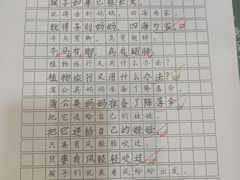 孩子如果已经长大，
就得告别妈妈，四海为家。
就得告别妈妈，四海为家。
牛马有脚，鸟有翅膀，
牛马有脚，鸟有翅膀
植物旅行又用什么办法？
植物旅行又用什么办法？
蒲公英妈妈准备了降落伞，
蒲公英妈妈准备了降落伞
把它送给自己的娃娃。
把它送给自己的娃娃
只要有风轻轻吹过，
只要有风轻轻吹过
孩子们就乘着风纷纷出发。